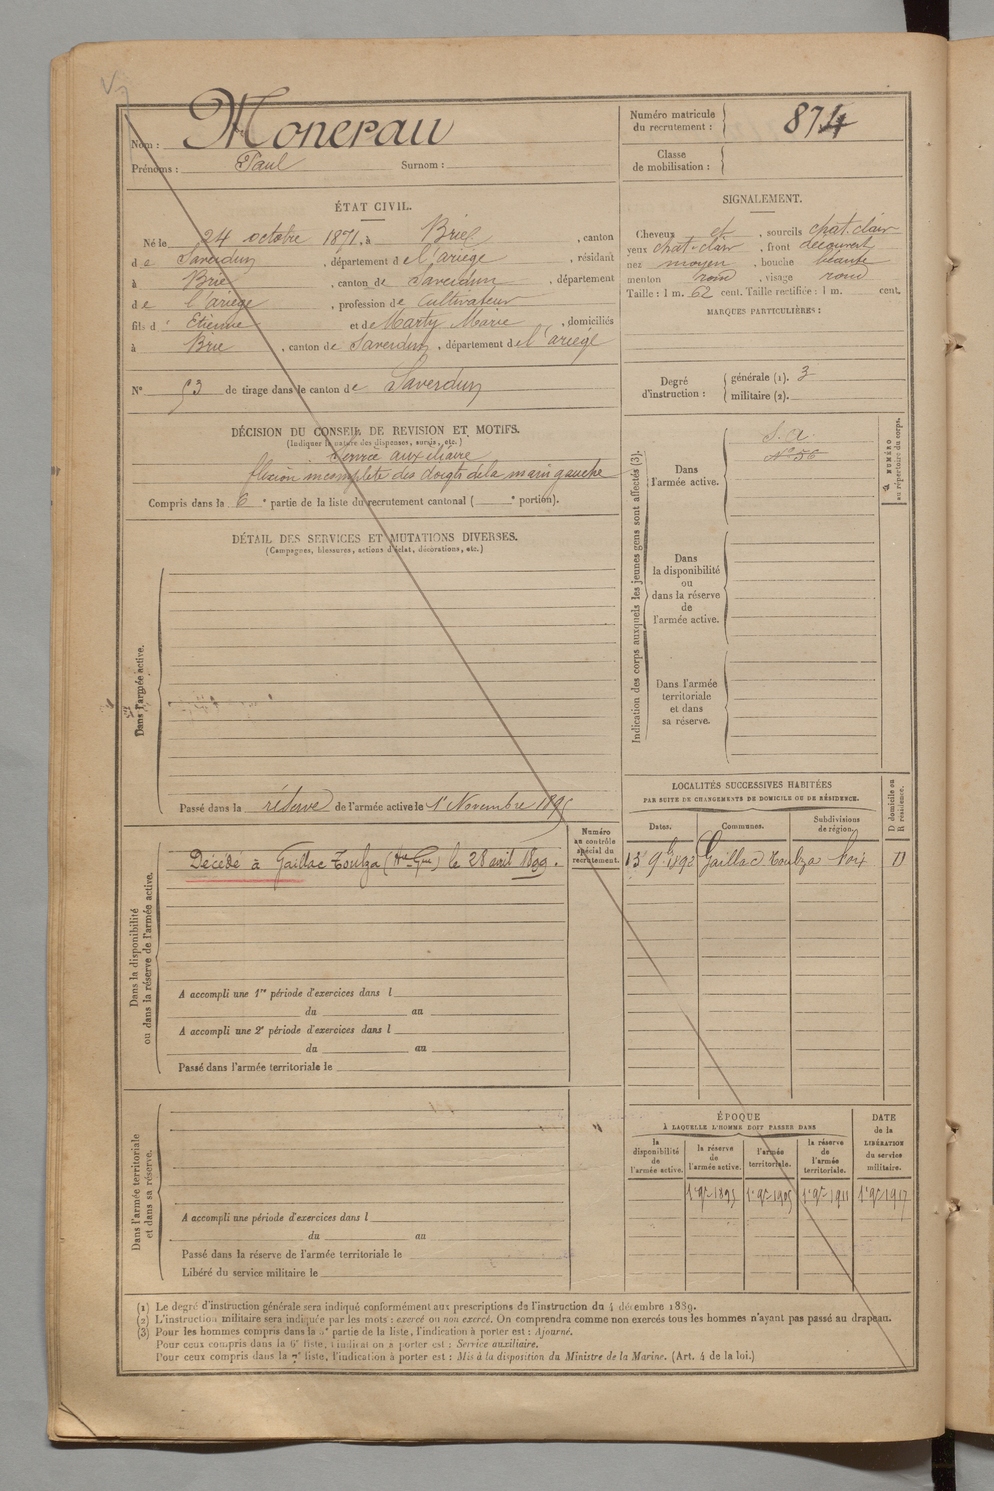 Nom : Monerau
Prénoms : Paul Surnom :
Numéro matricule du recrutement : 874
Classe de mobilisation :
ÉTAT CIVIL.
Né le 24 octobre 1871, à Brie, canton
de Saverdun, département de l'ariège, résidant
à Brie, canton de Saverdun, département
de l'ariège, profession de Cultivateur
fils d' Etienne et de Marty Marie, domiciliés
à Brie, canton de Saverdun, département de l'ariège
N° 53 de tirage dans le canton de Saverdun
SIGNALEMENT.
Cheveux et, sourcils chat. clair
yeux chat-clair, front découvert
nez moyen, bouche béante
menton rond, visage rond
Taille : 1 m. 62 cent. Taille rectifiée : 1 m. cent.
MARQUES PARTICULIÈRES :
Degré d'instruction : générale (1). 3
militaire (2).
DÉCISION DU CONSEIL DE REVISION ET MOTIFS.
(Indiquer la nature des dispenses, sursis, etc.)
Service auxiliaire
flexion incomplète des doigts de la main gauche
Compris dans la 6e partie de la liste du recrutement cantonal ( e portion).
Indication des corps auxquels les jeunes gens sont affectés (3).
Dans l'armée active.
S. A.
N° 56
Dans la disponibilité ou dans la réserve de l'armée active.
Dans l'armée territoriale et dans sa réserve.
NUMÉRO au répertoire du corps.
DÉTAIL DES SERVICES ET MUTATIONS DIVERSES.
(Campagnes, blessures, actions d'éclat, décorations, etc.)
Dans l'armée active.
Passé dans la réserve de l'armée active le 1er Novembre 1895
Numéro au contrôle spécial du recrutement.
Dans la disponibilité ou dans la réserve de l'armée active.
Décédé à Gaillac Toulza (Hte Gne) le 28 avril 1899.
A accompli une 1re période d'exercices dans l
du au
A accompli une 2e période d'exercices dans l
du au
Passé dans l'armée territoriale le
Dans l'armée territoriale et dans sa réserve.
A accompli une période d'exercices dans l
du au
Passé dans la réserve de l'armée territoriale le
Libéré du service militaire le
LOCALITÉS SUCCESSIVES HABITÉES
PAR SUITE DE CHANGEMENTS DE DOMICILE OU DE RÉSIDENCE.
Dates. Communes. Subdivisions de région. D domicile ou R résidence.
13 9bre 1892 Gaillac Toulza Foix D
ÉPOQUE
À LAQUELLE L'HOMME DOIT PASSER DANS
la disponibilité de l'armée active. la réserve de l'armée active. l'armée territoriale. la réserve de l'armée territoriale. DATE de la LIBÉRATION du service militaire.
1er 9bre 1895 1er 9bre 1905 1er 9bre 1911 1er 9bre 1917
(1) Le degré d'instruction générale sera indiqué conformément aux prescriptions de l'instruction du 4 décembre 1889.
(2) L'instruction militaire sera indiquée par les mots : exercé ou non exercé. On comprendra comme non exercés tous les hommes n'ayant pas passé au drapeau.
(3) Pour les hommes compris dans la partie de la liste, l'indication à porter est : Ajourné.
Pour ceux compris dans la 6e liste, l'indication à porter est : Service auxiliaire.
Pour ceux compris dans la 7e liste, l'indication à porter est : Mis à la disposition du Ministre de la Marine. (Art. 4 de la loi.)